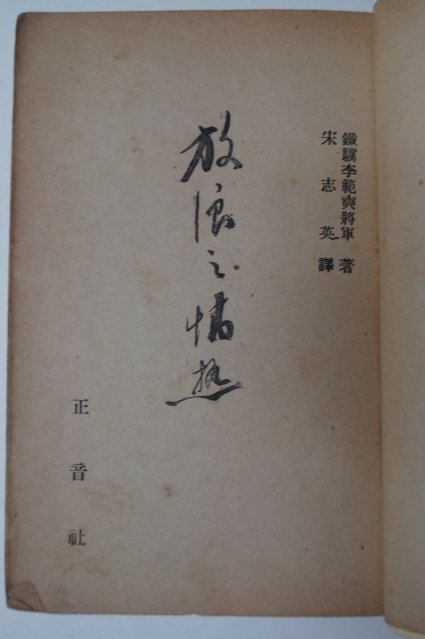 鐵驥李範奭將軍 著
宋志英 譯
放浪之情热
正音社